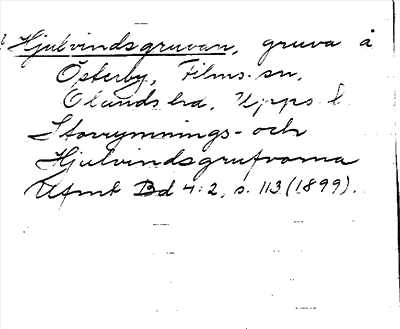 Hjulvindsgruvan, gruva å
Österby, Films sn,
Olands hd, Upps l
Storrymnings- och
Hjulvindsgrufvorna
Utmt Bd 4:2, s. 113 (1899).